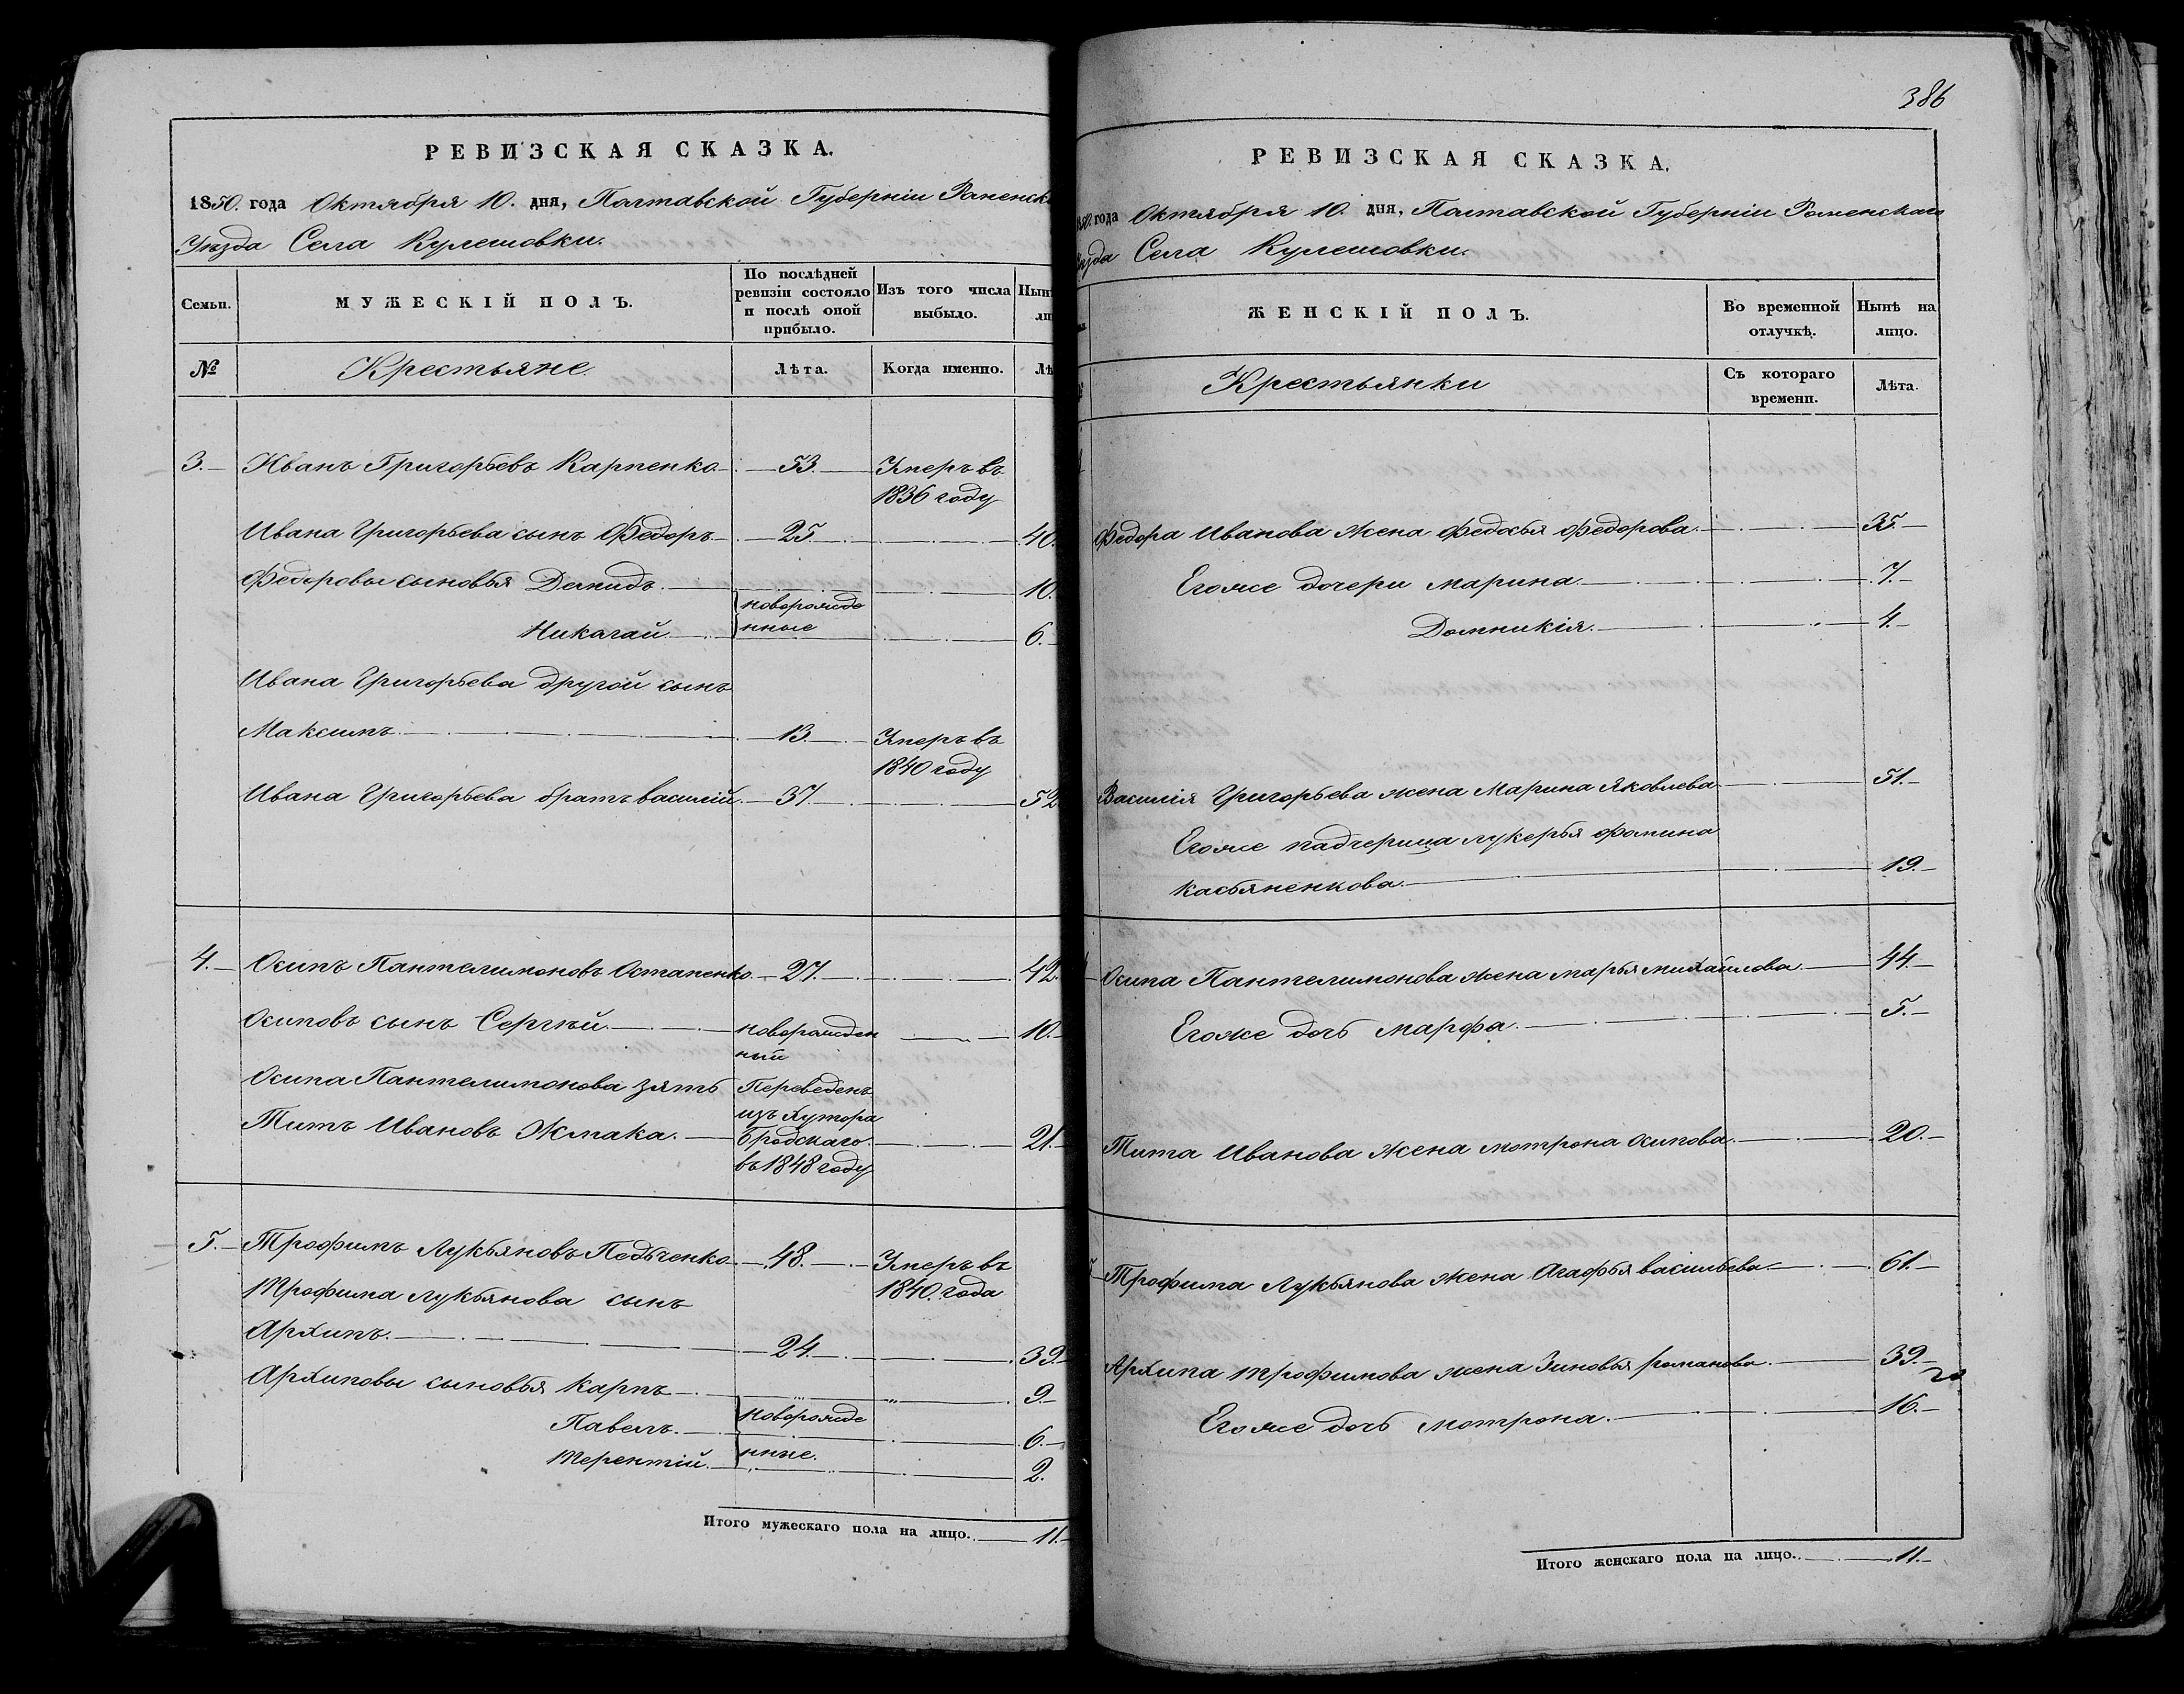 РЕВИЗСКАЯ СКАЗКА.
1850. года Октября 10. дня, Полтавской Губерніи Роменск
Уѣзда Села Кулешовки.
Семьи.
МУЖЕСКІЙ ПОЛЪ.
По послѣдней
ревизіи состояло
и послѣ оной
прибыло.
Изъ того числа
выбыло.
Нын
ли
№
Крестьяне.
Лѣта.
Когда именно.
Лѣ
3. Иванъ Григорьевъ Карпенко 53. Умеръ въ
1836 году
Ивана Григорьева сынъ Федоръ 25. 40.
Федоровы сыновья Демидъ. 10.
новорожде
нные
Николай 6.
Ивана Григорьева другой сынъ
Максимъ 13. Умеръ въ
1840 году
Ивана Григорьева братъ василій. 37. 52
4. Осипъ Пантелимоновъ Остапенко. 27. 42.
Осиповъ сынъ Сергѣй. новорожден 10.
ный
Осипа Пантелимонова зять Переведенъ
изъ хутора
Титъ Ивановъ Жмака. Бродскаго. 21.
въ 1848 году
5. Трофимъ Лукьяновъ Педьченко 48. Умеръ въ
1840. года
Трофима лукьянова сынъ
Архипъ. 24. 39.
Архиповы сыновья карпъ 9.
новорожде
Павелъ. 6.
нные.
Терентій. 2.
Итого мужескаго пола на лицо. 11.
386
РЕВИЗСКАЯ СКАЗКА.
года Октября 10. дня, Полтавской Губерніи Роменскаго
Села Кулешовки.
ЖЕНСКІЙ ПОЛЪ.
Во временной
отлучкѣ.
Нынѣ на
лицо.
Крестьянки
Съ котораго
времени.
Лѣта.
Федора Иванова жена федосья Федорова. 35.
Егоже дочери марина 7.
Домникія. 4.
Василія Григорьева жена Марина Яковлева 51.
Егоже падчерица лукерья фомина
касьяненкова. 19.
Осипа Пантелимонова жена марья михайлова. 44.
Егоже дочь марфа. 5.
Тита Иванова жена мотрона осипова. 20.
Трофима Лукьянова жена Агафья васильева 61.
Архипа трофимова жена Зиновья романова. 39.
Егоже дочь мотрона. 16.
Итого женскаго пола на лицо. 11.